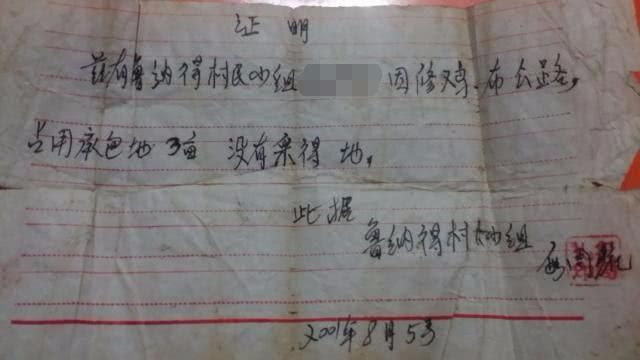 证明
兹有鲁纳得村民小组 因修鸡、布公路,
占用承包地3亩 没有采得 地,
此据
鲁纳得村民小组
2001年8月5号